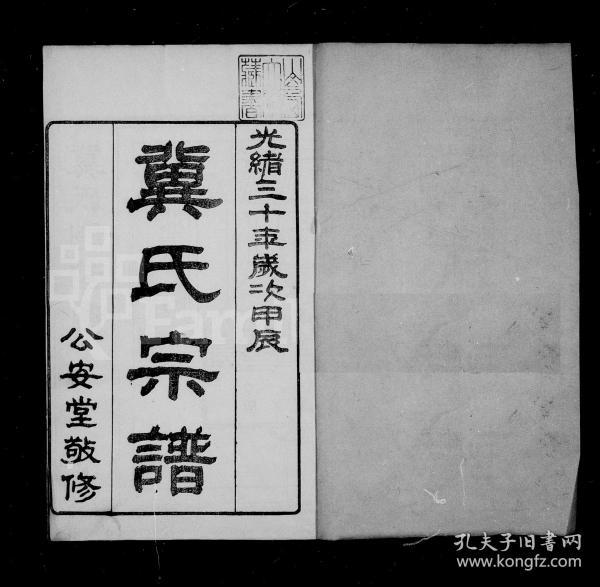 光緒三十年歲次甲辰
冀氏宗譜
公安堂敬修
孔夫子旧书网
www.kongfz.com